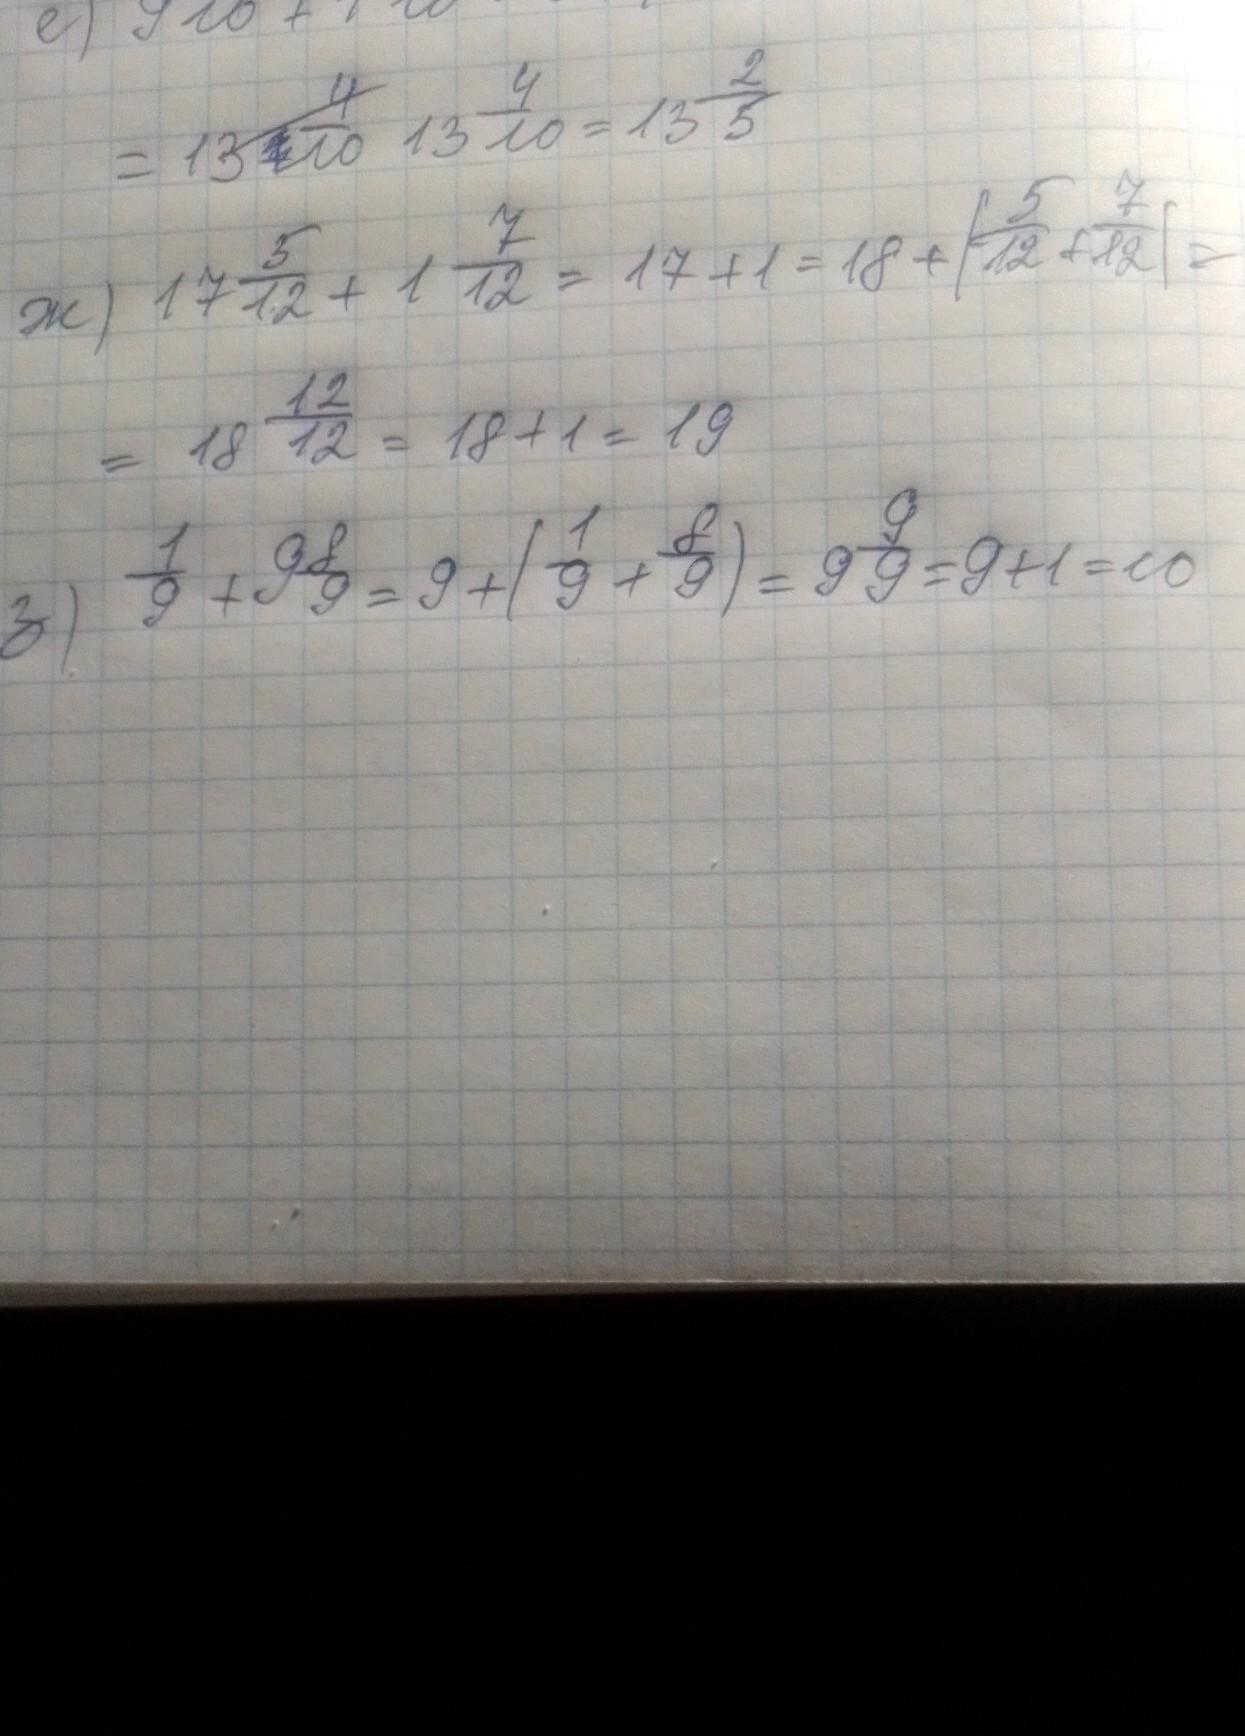 е)
= 13 4/10 13 4/10 = 13 2/5
ж) 17 5/12 + 1 7/12 = 17 + 1 = 18 + (5/12 + 7/12) =
= 18 12/12 = 18 + 1 = 19
з) 1/9 + 9 8/9 = 9 + (1/9 + 8/9) = 9 9/9 = 9 + 1 = 10